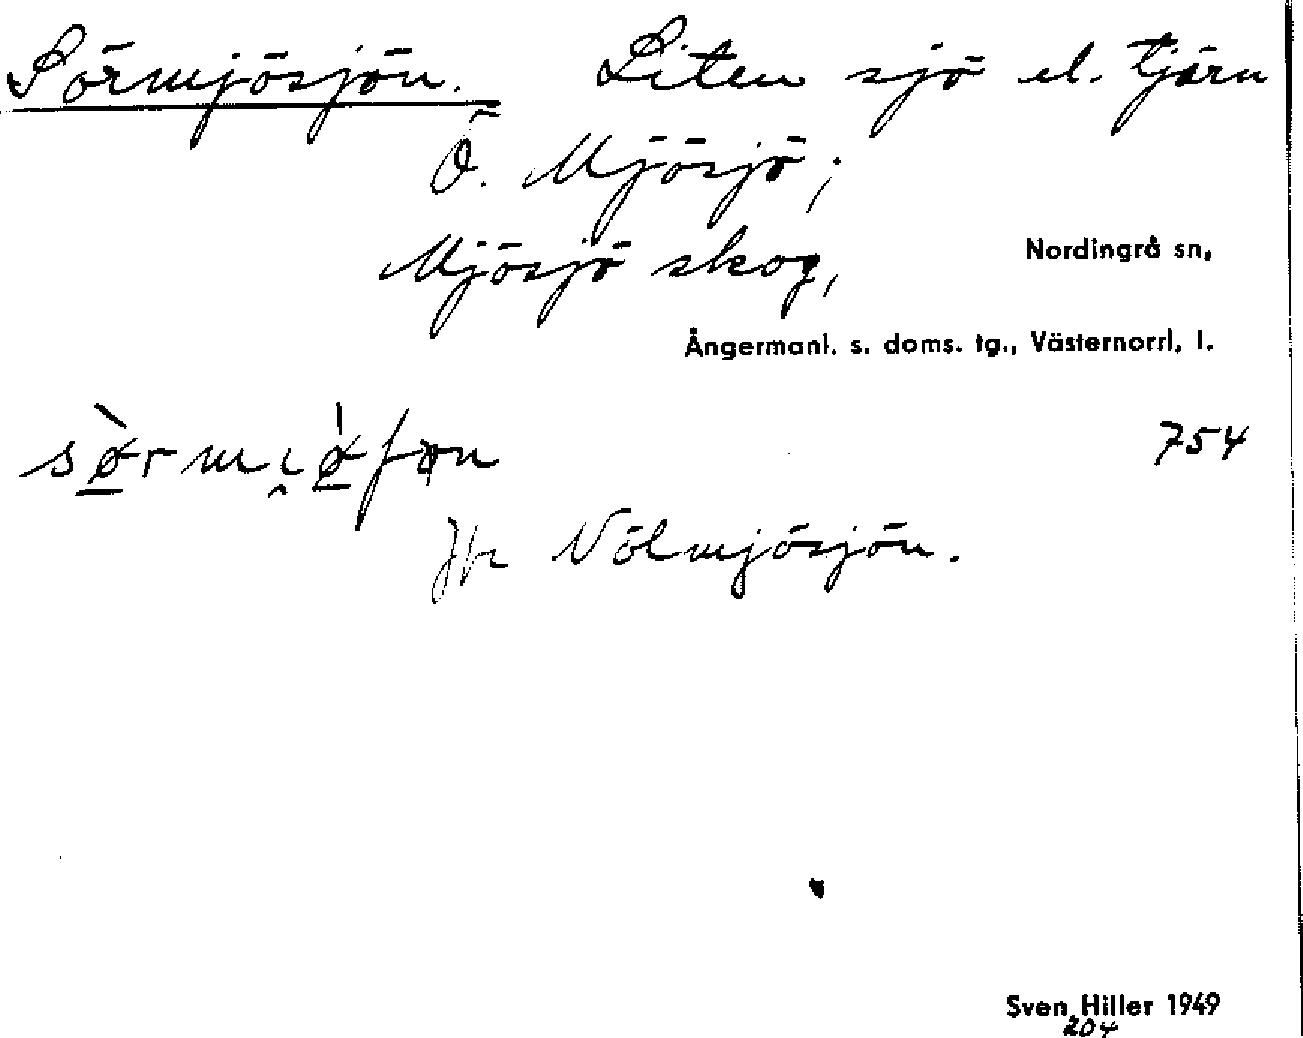 Sörmjösjön. Liten sjö el. tjärn
Ö. Mjösjö;
Mjösjö skog,
Nordingrå sn,
Ångermanl. s. doms. tg., Västernorrl. l.
754
Jfr Nölmjösjön.
Sven Hiller 1949
204